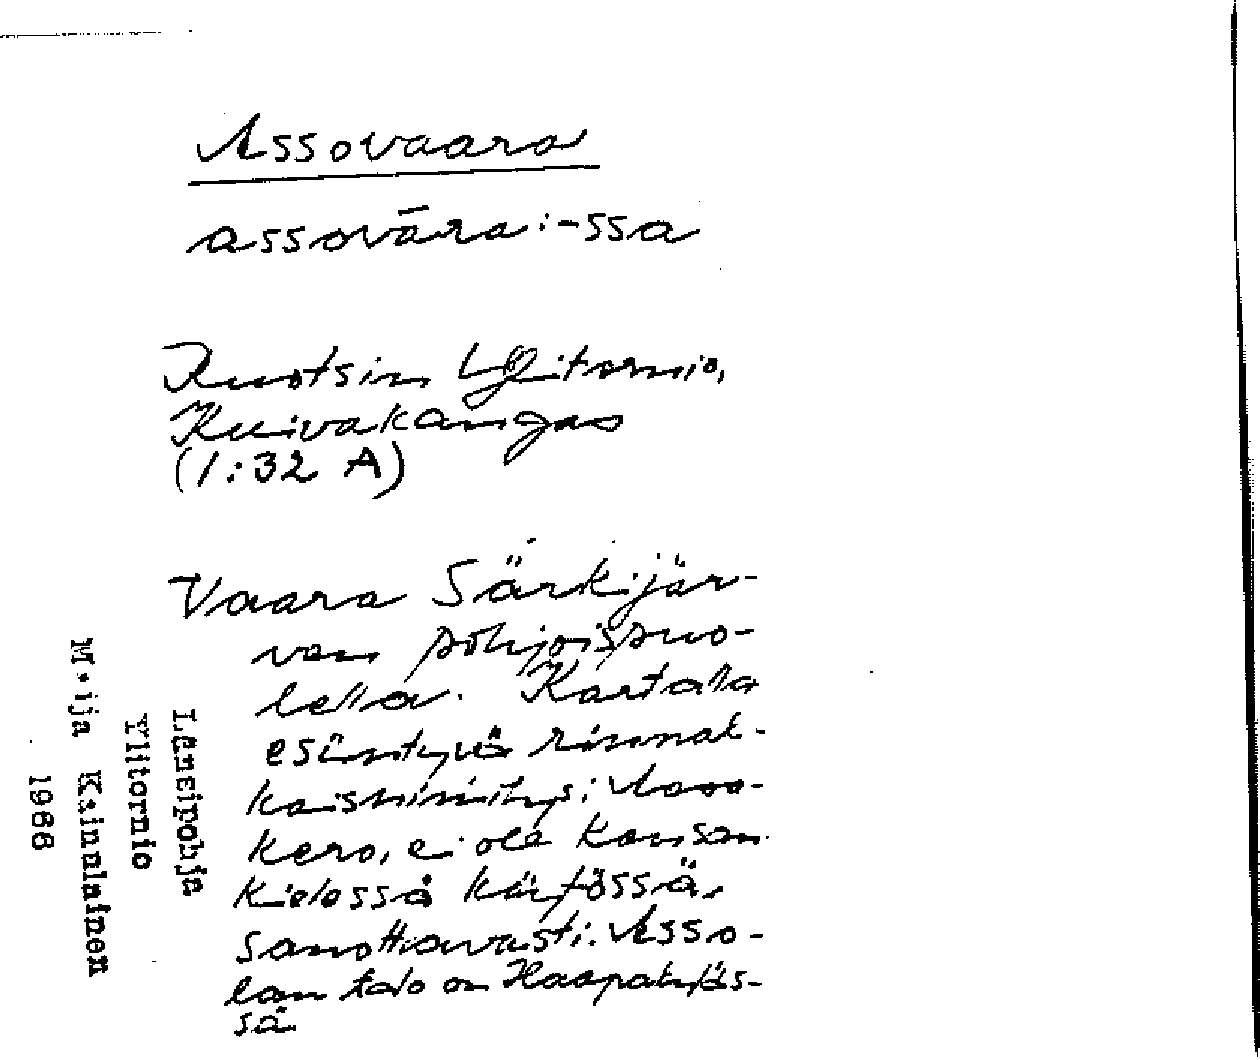 Assovaara
assovāra: -ssa
Ruotsin Ylitornio,
Kuivakangas
(1:32 A)
Vaara Särkijär-
ven pohjoispuo-
lella. Kartalla
esiintyvä rinnak-
kaisnimitys:
kero, ei ole kansan
kielessä käytössä,
sanottavasti. Asso-
lan talo on Haapakyläs-
sä
Länsipohja
Ylitornio
Maija Kainulainen
1966